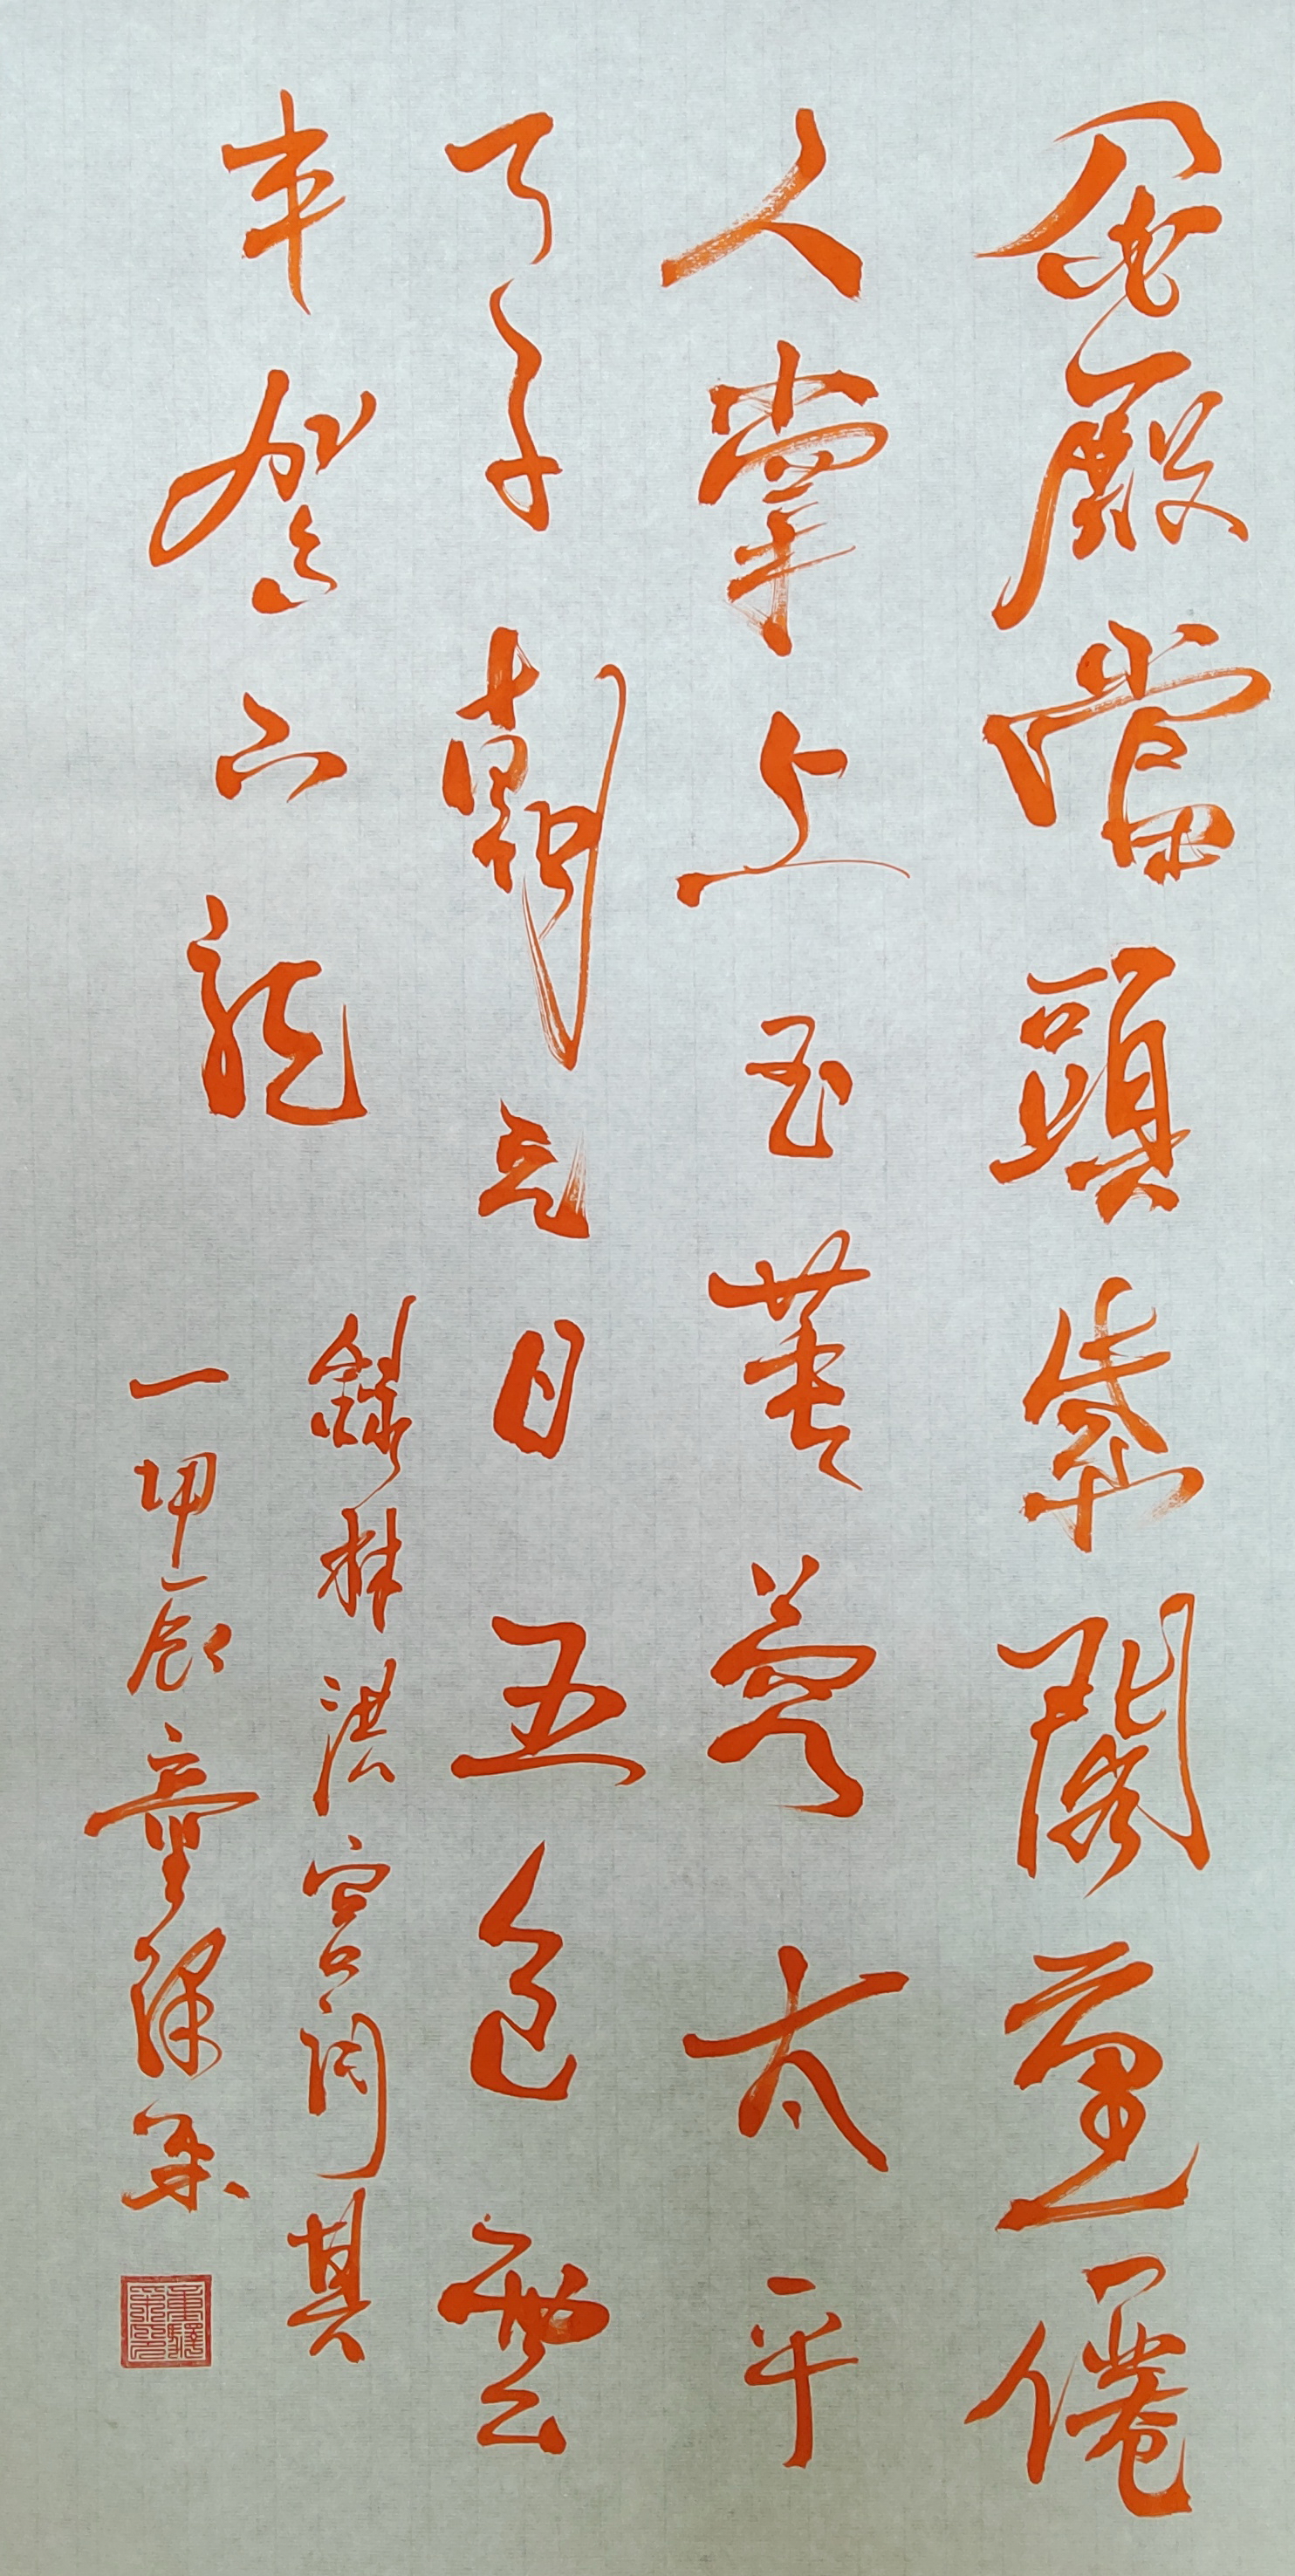 金殿當頭紫閣重僊
人掌上玉芙蓉太平
天子朝元日五色雲
車駕六龍
錄林洪宮詞其
一甲辰章